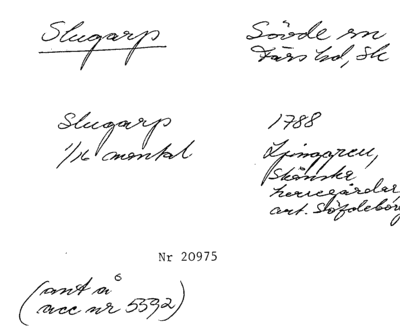 Slugarp
Sövde sn
Färs hd, Sk
Slugarp
1/16 mantal
1788
Ljunggren,
Skånska
herregårdar,
art. Söfdeborg
Nr 20975
(ant å
acc nr 5592)